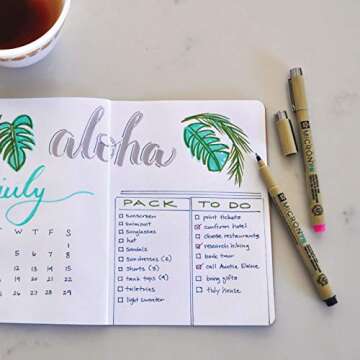 aloha
july
W T F S
1
5 6 7 8
12 13 14 15
19 20 21 22
26 27 28 29
PACK
sunscreen
swimsuit
sunglasses
hat
sandals
sundresses (2)
shorts (3)
tank tops (4)
toiletries
light sweater
TO DO
print tickets
confirm hotel
choose restaurants
research hiking
book tour
call Auntie Elaine
bring gifts
tidy house
MICRON
MICRON